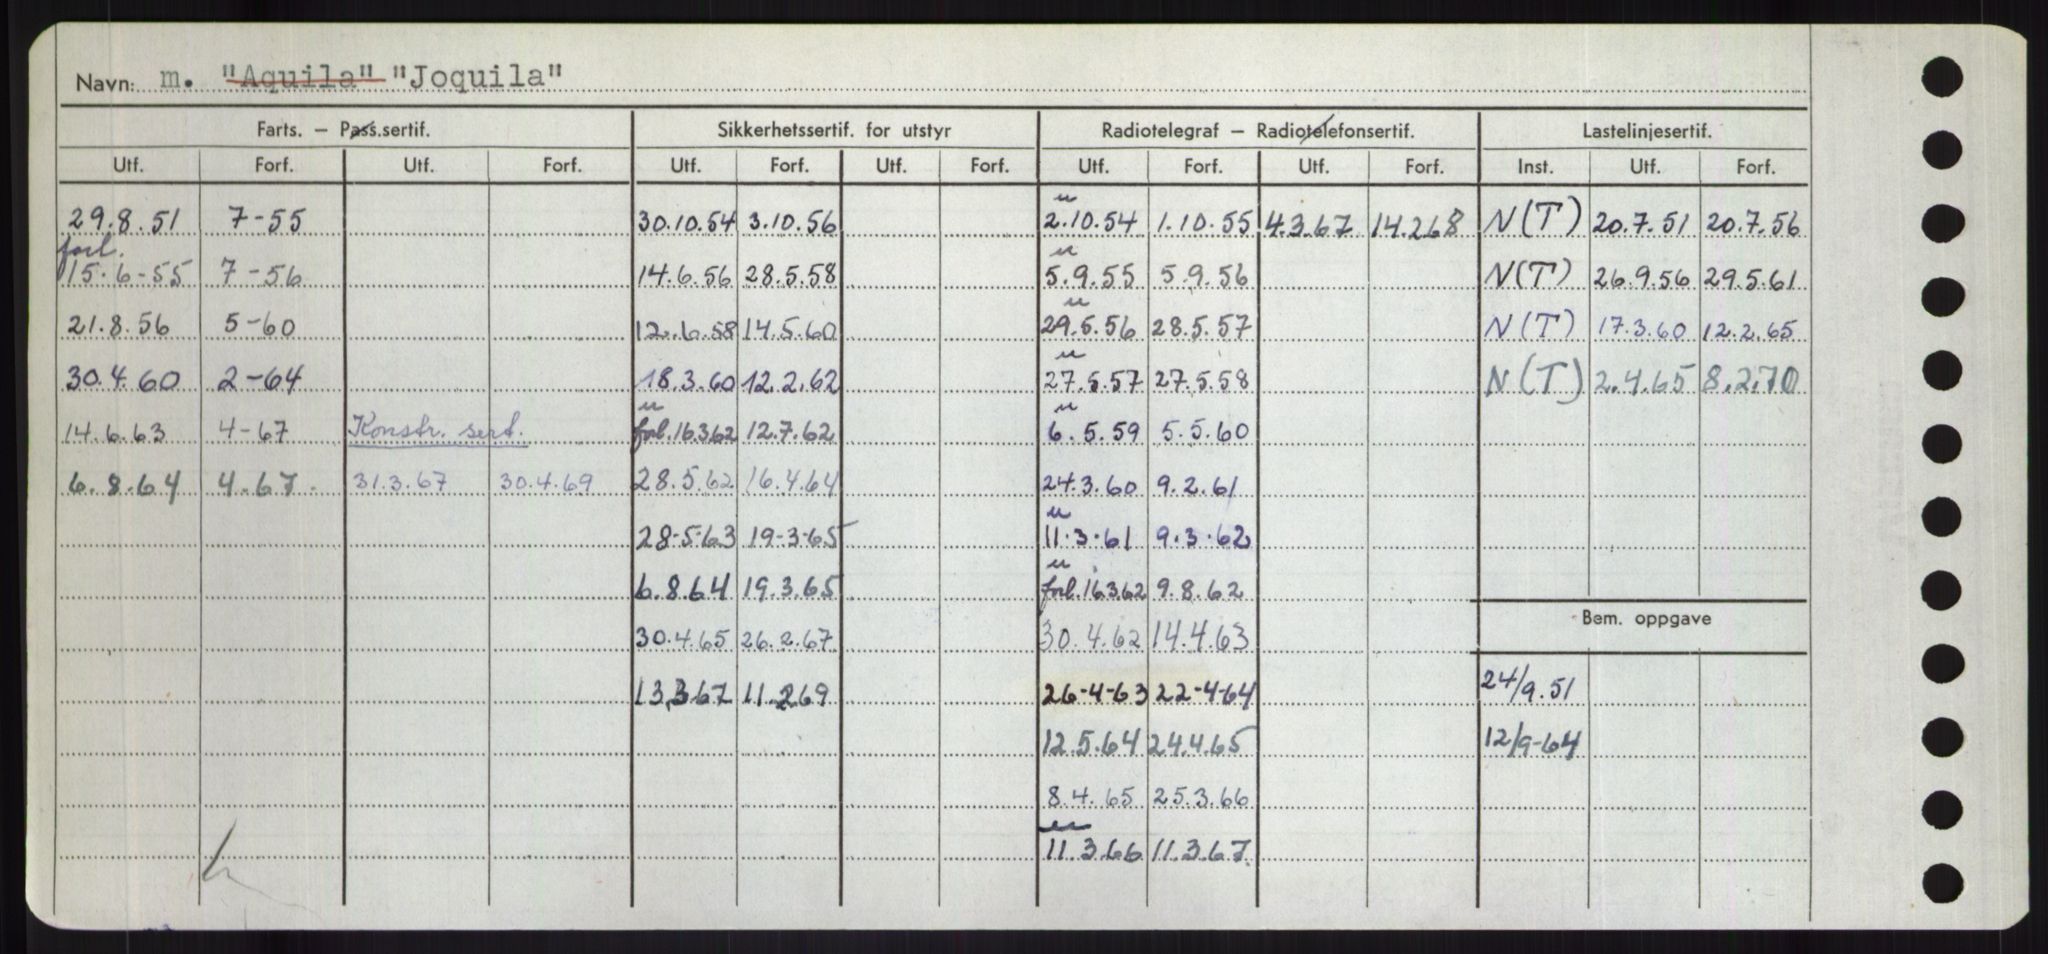 Navn: m. "Aquila" "Joquila"
Farts. – Pass.sertif. Sikkerhetssertif. for utstyr Radiotelegraf – Radiotelefonsertif. Lastelinjesertif.
Utf. Forf. Utf. Forf. Utf. Forf. Utf. Forf. Utf. Forf. Utf. Forf. Inst. Utf. Forf.
u
29.8.51 7-55 30.10.54 3.10.56 2.10.54 1.10.55 4.3.67 14.2.68 N(T) 20.7.51 20.7.56
forl. u
15.6-55 7-56 14.6.56 28.5.58 5.9.55 5.9.56 N(T) 26.9.56 29.5.61
u
21.8.56 5-60 12.6.58 14.5.60 29.5.56 28.5.57 N(T) 17.3.60 12.2.65
u
30.4.60 2-64 18.3.60 12.2.62 27.5.57 27.5.58 N(T) 2.4.65 8.2.70
u u
14.6.63 4-67 Konstr. sert. forl.16.3.62 12.7.62 6.5.59 5.5.60
6.8.64 4.67. 31.3.67 30.4.69 28.5.62 16.4.64 24.3.60 9.2.61
u
28-5-63 19-3-65 11.3.61 9.3.62
u
6.8.64 19.3.65 forl.16.3.62 9.8.62
Bem. oppgave
30.4.65 26.2.67 30.4.62 14.4.63
13.3.67 11.2.69 26-4-63 22-4-64 24/9.51
12.5.64 24.4.65 12/9-64
8.4.65 25.3.66
u
11.3.66 11.3.67.